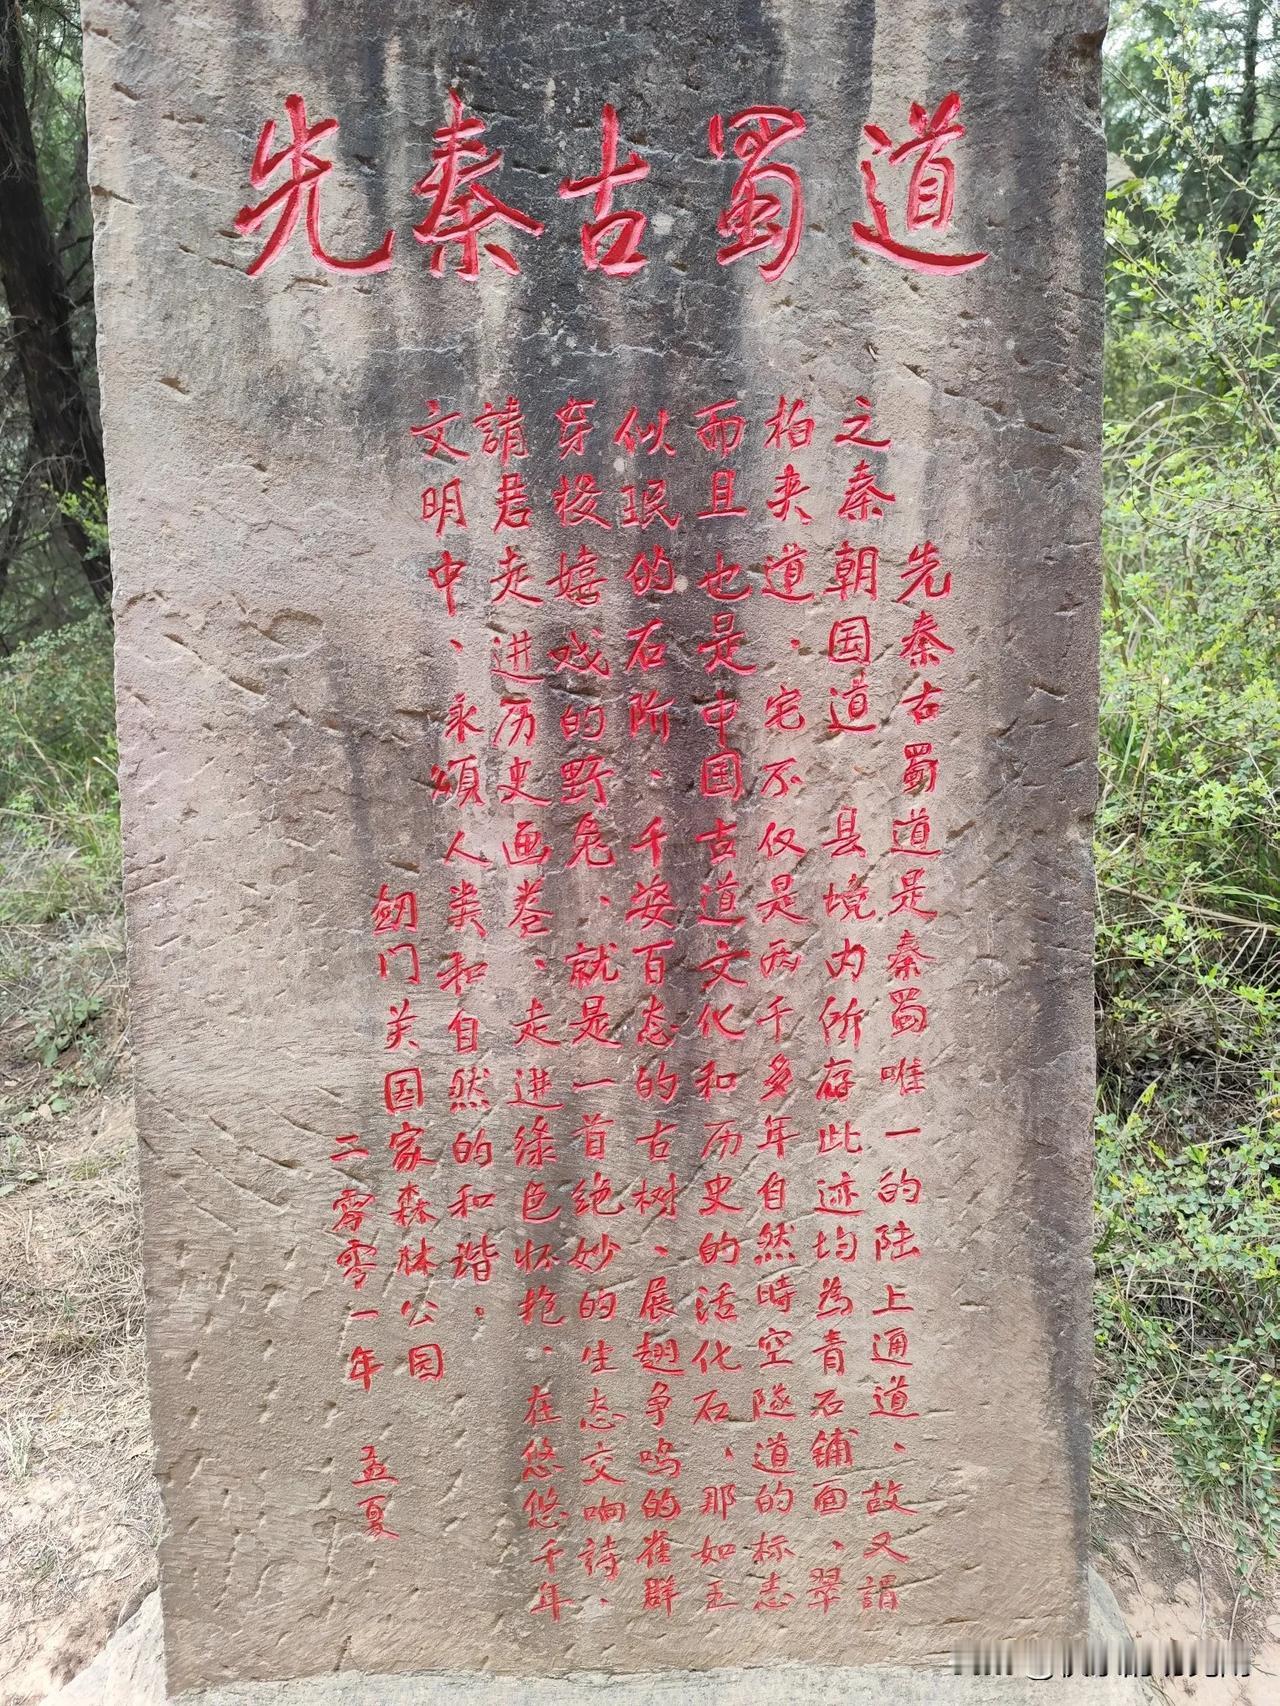 先秦古蜀道
先秦古蜀道是秦蜀唯一的陆上通道、故又謂
之秦朝国道、县境内所存此迹均為青石铺面、翠
柏夹道、宅不仅是两千多年自然時空隧道的标志
而且也是中国古道文化和历史的活化石、那如玉
似珉的石阶、千姿百态的古树、展翅争鸣的雀群
穿投嬉戏的野兔、就是一首绝妙的生态交响詩、
請君走进历史画卷、走进绿色怀抱、在悠悠千年
文明中、永頌人类和自然的和谐、
釼门关国家森林公园
二零零一年 孟夏